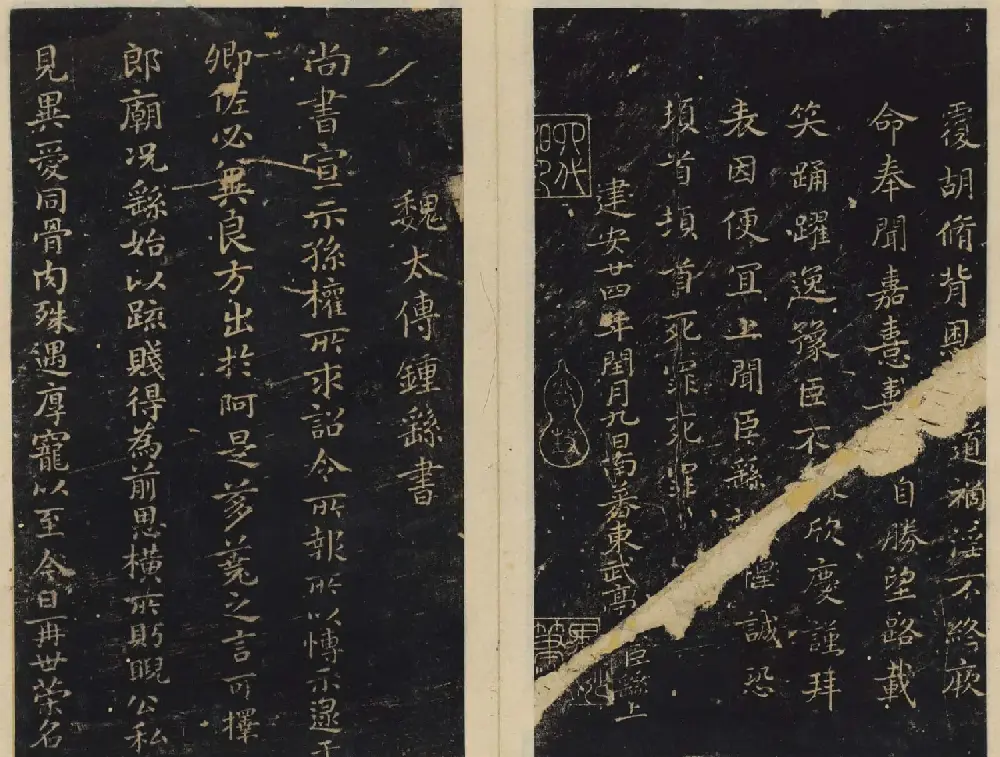 覆胡脩背恩道禍淫不終厥
命奉聞嘉憙自勝望路載
笑踊躍逸豫臣不欣慶謹拜
表因便宜上聞臣繇惶誠恐
頓首頓首死罪死罪
建安廿四年閏月九日南蕃東武亭臣繇上
魏太傅鍾繇書
尚書宣示孫權所求詔令所報所以博示逮于
卿佐必異良方出於阿是芻蕘之言可擇
郎廟况繇始以疏賤得為前恩橫所眄睨公私
見異愛同骨肉殊遇厚寵以至今日再世榮名